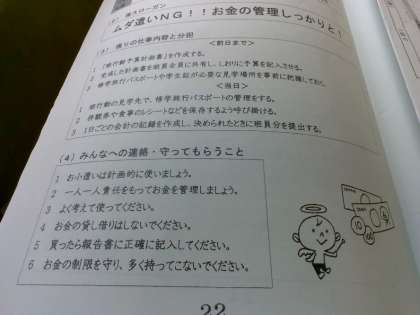 (2) 係スローガン
ムダ遣いNG!!お金の管理しっかりと!
(3) 係りの仕事内容と分担
<前日まで>
1 「班行動予算計画書」を作成する。
2 完成した計画書を班員全員に共有し、しおりに予算を記入させる。
3 修学旅行パスポートや学生証が必要な見学場所を事前に把握しておく。
<当日>
1 班行動の見学先で、修学旅行パスポートの管理をする。
2 拝観券や食事のレシートなどを保存するよう呼び掛ける。
3 1日ごとの会計の記録を作成し、決められたときに班員分を提出する。
(4) みんなへの連絡・守ってもらうこと
1 お小遣いは計画的に使いましょう。
2 一人一人責任をもってお金を管理しましょう。
3 よく考えて使ってください。
4 お金の貸し借りはしないでください。
5 買ったら報告書に正確に記入してください。
6 お金の制限を守り、多く持ってこないでください。
22